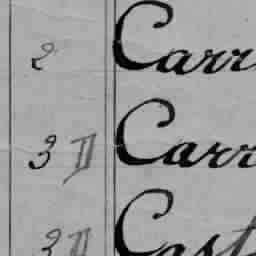 2 Carr
3 II Carr
3 II Cast